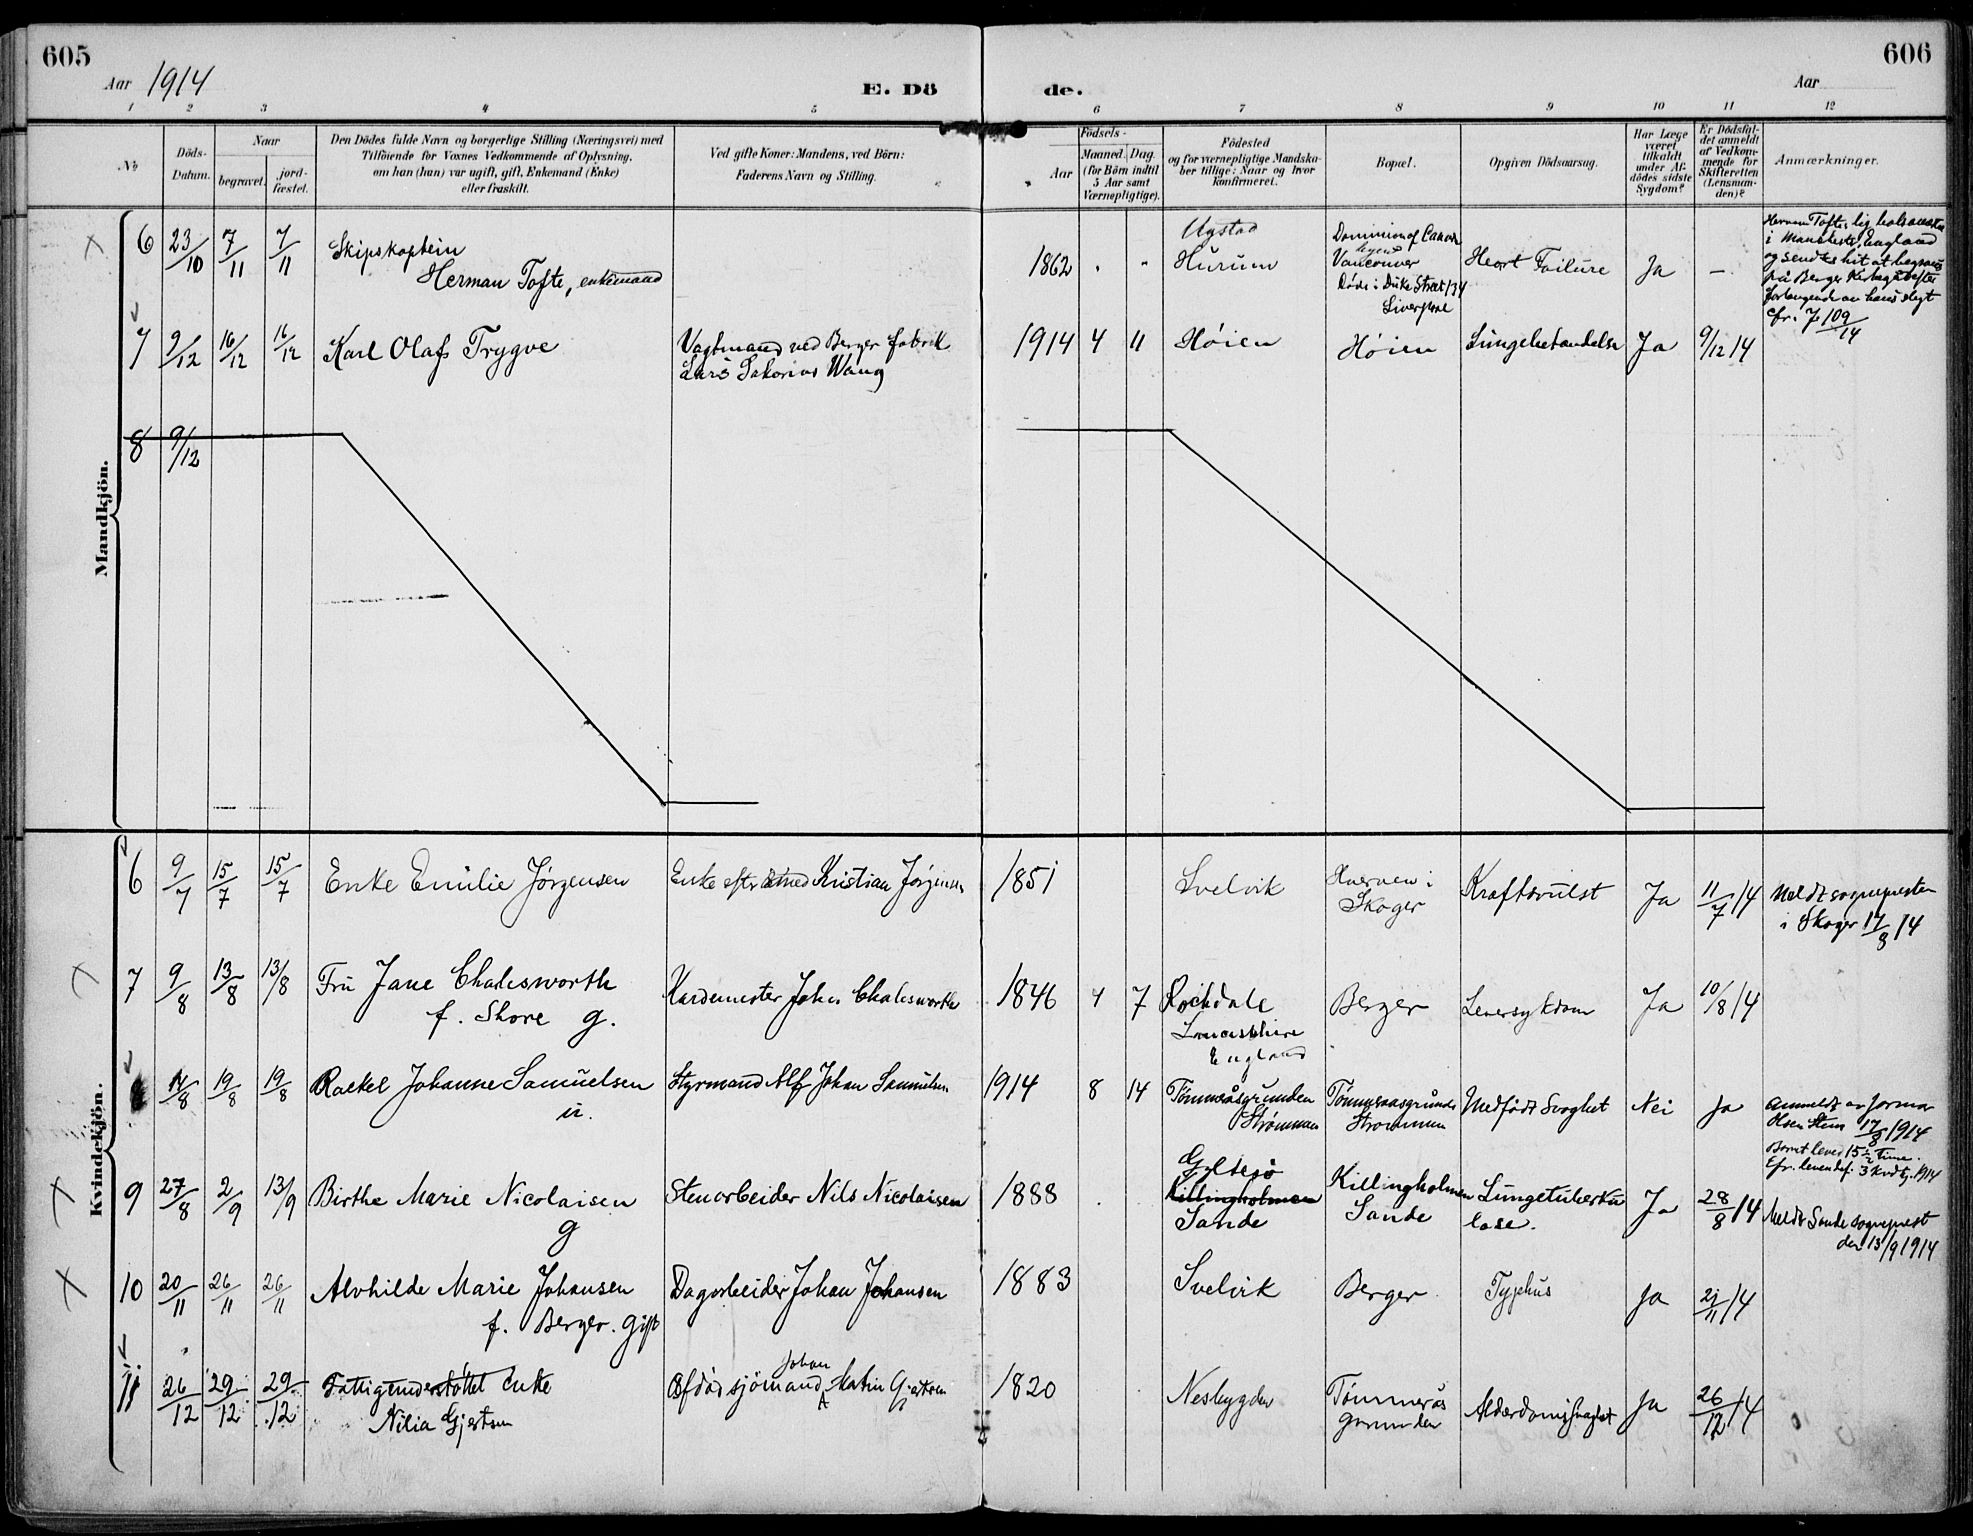 605
606
Aar 1914
E. Dö
de.
Aar
1 2 3 4 5 6 7 8 9 10 11 12
No
Döds-
Datum.
Naar
begravet.
jord-
fæstet.
Den Dödes fulde Navn og borgerlige Stilling (Næringsvei) med
Tilföiende for Voxnes Vedkommende af Oplysning,
om han (hun) var ugift, gift, Enkemand (Enke)
eller fraskilt.
Ved gifte Koner: Mandens, ved Börn:
Faderens Navn og Stilling.
Födsels-
Aar
Maaned. Dag.
(for Börn indtil
5 Aar samt
Værnepligtige).
Födested
og for værnepligtige Mandska-
ber tillige: Naar og hvor
konfirmeret.
Bopæl.
Opgiven Dödsaarsag.
Har Læge
været
tilkaldt
under Af-
dödes sidste
Sygdom?
Er Dödsfal-
det anmeldt
af Vedkom-
mende for
Skifteretten
(Lensman-
den)?
Anmærkninger.
Mandkjön.
6 23/10 7/11 7/11
Skipskaptein
Herman Tofte, enkemand
1862
Hurum
Dominion of Canada
Vancouver
Døde i Duke Street 134
Liverpool
Heart Failure
Ja
—
Herman Toftes lig
i Manchester, England
og sendtes hit at begraves
på Berger Kirkegård efter
forlangende av hans slegt
cfr. J 109/14
7 9/12 16/12 16/12
Karl Olaf Trygve
Vagtmand ved Berger fabrik
Lars Sakarias Wang
1914 4 11
Høien
Høien
Lungebetændelse
Ja
9/12 14
8 9/12
Kvindekjön.
6 9/7 15/7 15/7
Enke Emilie Jørgensen
Enke efter Kristian Jørgensen
1851
Svelvik
Skoger
Kraftsvulst
Ja
11/7 14
Meldt sognepresten
i Skoger 17/8 14
7 9/8 13/8 13/8
Fru Jane Chalesworth
f. Shore g.
Kardemester John Chalesworth
1846 4 7
Rochdale
Lancashire
England
Berger
Leversykdom
Ja
10/8 14
14/8 19/8 19/8
Rakel Johanne Samuelsen
u.
Styrmand Alf Johan Samuelsen
1914 8 14
Tømmeråsgrunden
Strømmen
Tømmeraasgrunden
Strømmen
Medfødt Svaghet
Nei
Ja
Anmeldt av
17/8 1914
Barnet levet 15 1/2 Time.
9 27/8 2/9 13/9
Birthe Marie Nicolaisen
g
Stenarbeider Nils Nicolaisen
1888
Killingholmen
Sande
Killingholmen
Sande
Lungetuberku
lose.
Ja
28/8 14
Meldt Sande sogneprest
den 13/9 1914
10 20/11 26/11 26/11
Alvhilde Marie Johansen
f. Berger. gift
Dagarbeider Johan Johansen
1883
Svelvik
Berger
Typhus
Ja
21/11 14
11 26/12 29/12 29/12
Fattigunderstøttet Enke
Nilia Gjertsen
Johan
Afdød sjømand Martin Gjertsen
1820
Nesbygden
Tømmerås
grunden
Alderdomssvaghet
Ja
26/12 14